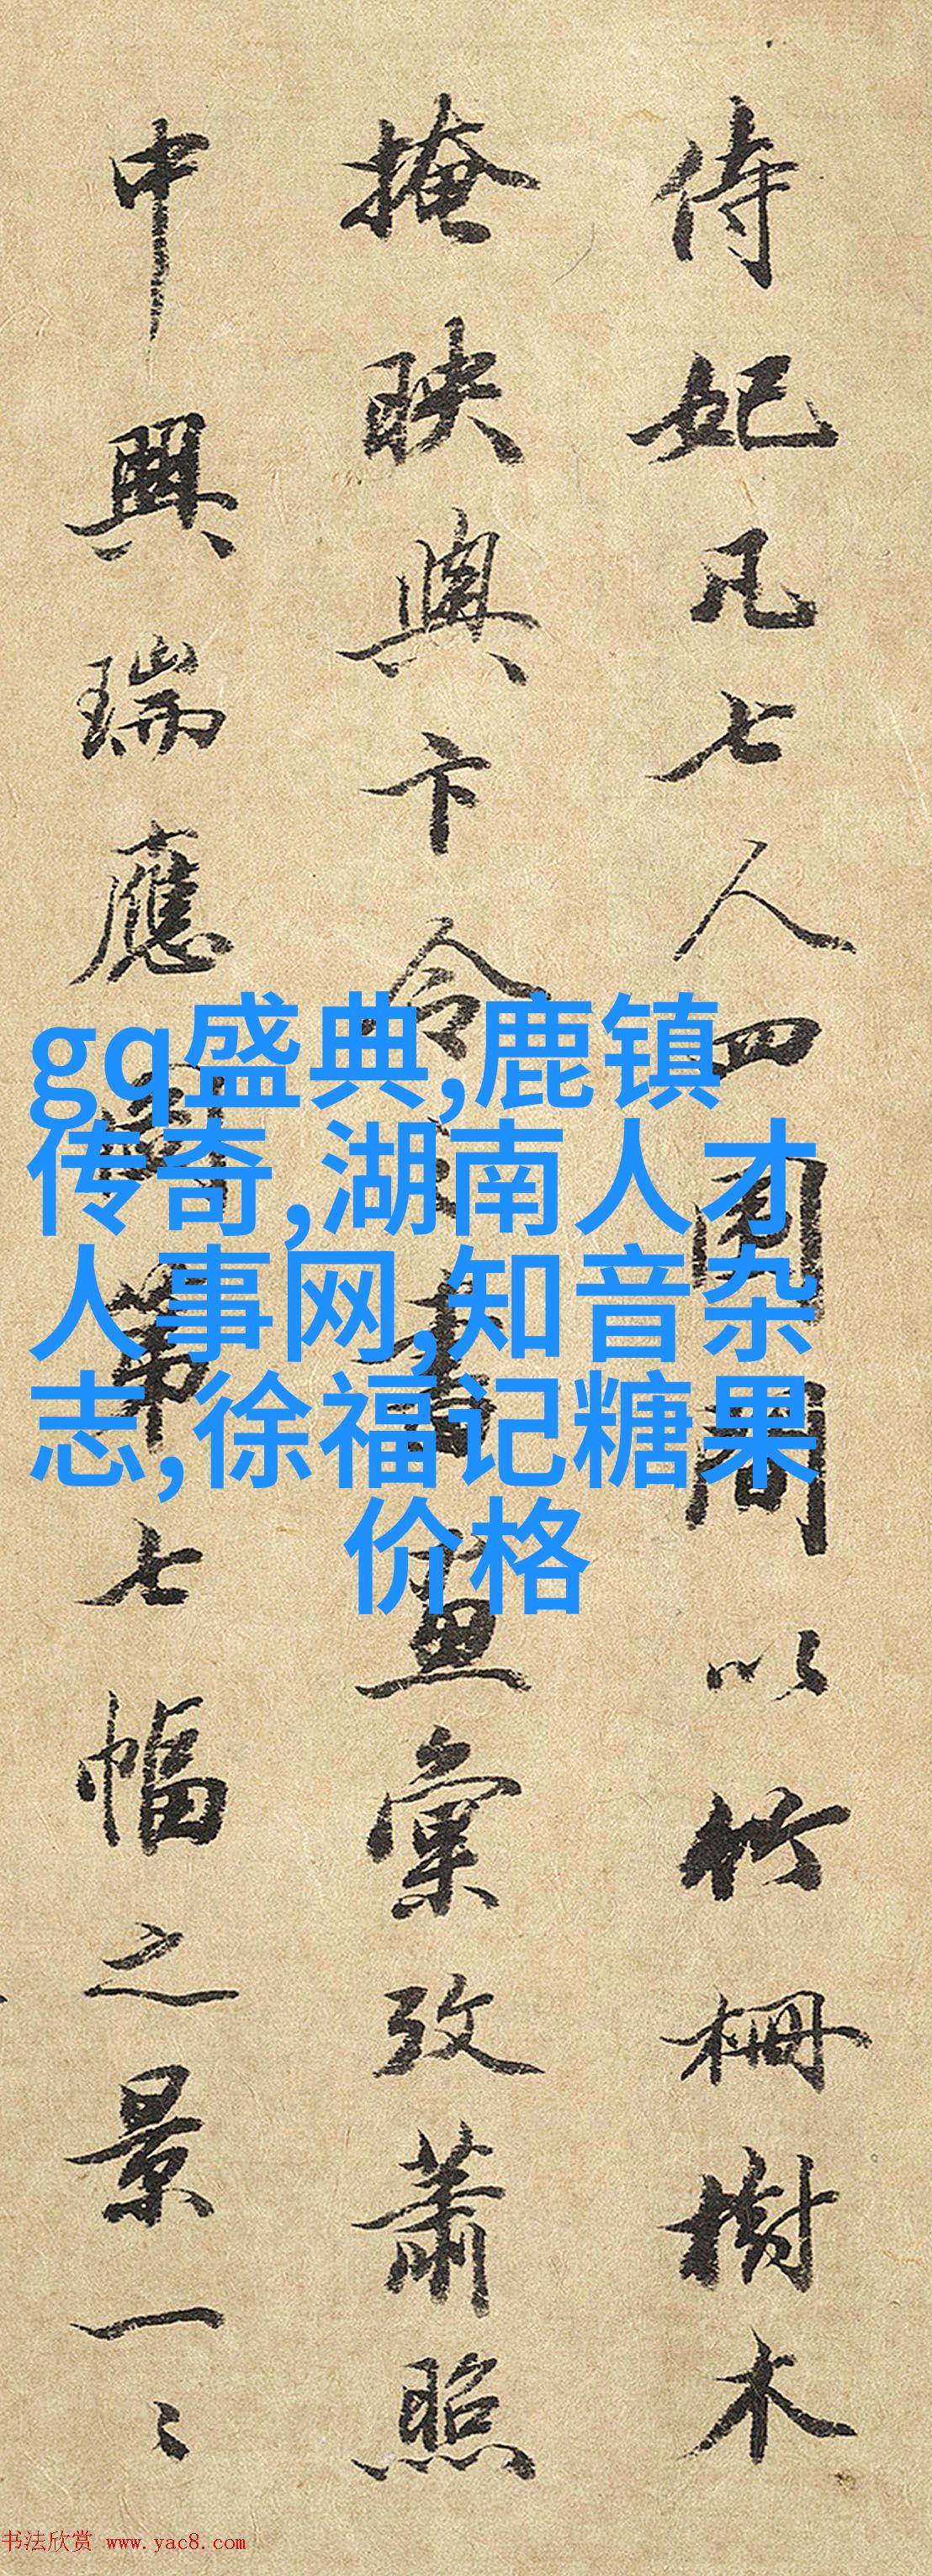 侍妃凡七人四圍間以竹柵樹木
掩映與卞令之書畫彙攷蕭照
中興瑞應圖第七幅之景一〻
gq盛典,鹿镇
传奇,湖南人才
人事网,知音杂
志,徐福记糖果
价格
书法欣赏 www.yac8.com